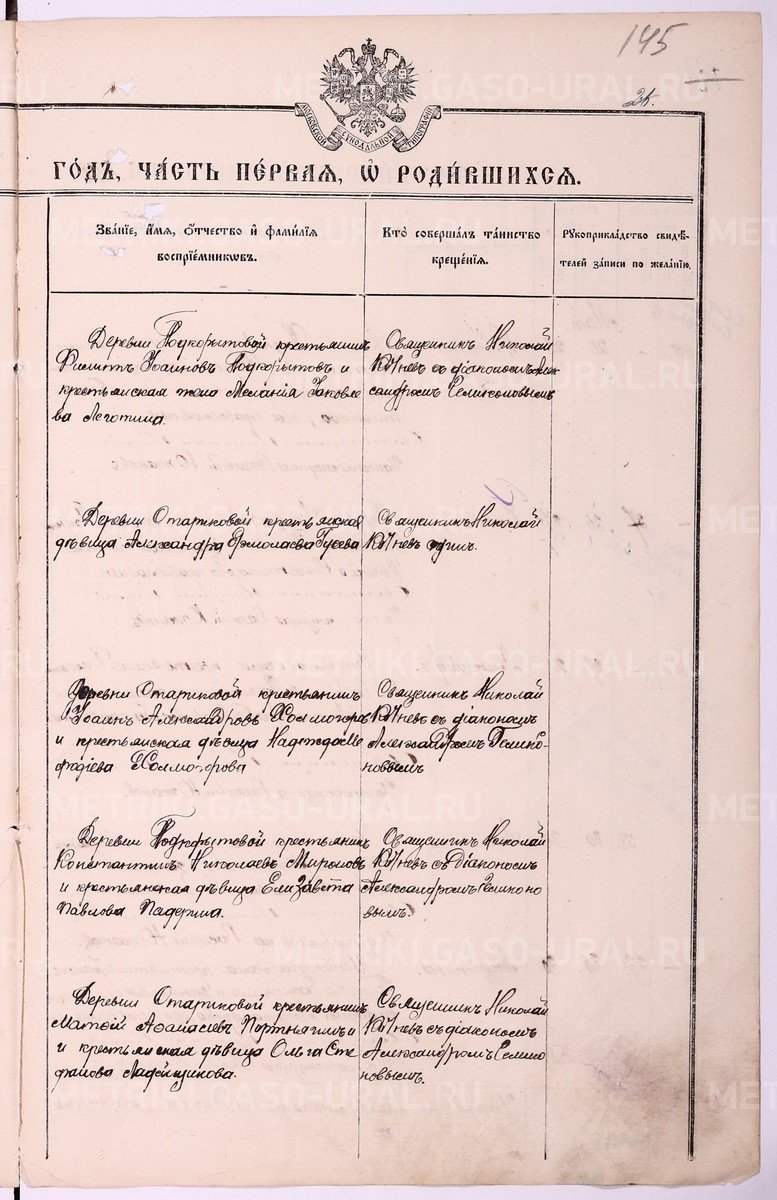 145
24.
МОСКОВСКОЙ СѴНОДАЛЬНОЙ ТИПОГРАФІИ
ГО́ДЪ, ЧА́СТЬ ПЕ́РВАЯ, Ѽ РОДИ́ВШИХСЯ.
Зва́ніе, и҆́мя, ѻ҆́тчество и҆ фами́лїя
воспрїе́мникѡвъ.
Кто̀ соверша́лъ та́инство
креще́нїя.
Рꙋкоприкла́дство свидѣ́-
телей за́писи по жела́нїю.
Деревни Подкорытовой крестьянинъ
Филиппъ Іоанновъ Подкорытовъ и
крестьянская жена Меланія Іаковле
ва Леготина.
Священникъ Николай
съ діакономъ Алек
сандромъ
Деревни Стариковой крестьянская
дѣвица Александра Ермолаева Гусева
Священникъ Николай
одинъ.
Деревни Стариковой крестьянинъ
Іоаннъ Александровъ Холмогоровъ
и крестьянская дѣвица Надежда Ме
фодіева Холмогорова
Священникъ Николай
съ діакономъ
Александромъ
новымъ
Деревни Подкорытовой крестьянинъ
Константинъ Николаевъ Мироновъ
и крестьянская дѣвица Елизавета
Павлова Падерина.
Священникъ Николай
съ діакономъ
Александромъ
вымъ.
Деревни Стариковой крестьянинъ
Матѳій Аѳанасьевъ Портнягинъ и
и крестьянская дѣвица Ольга Сте
фанова Ладейщикова.
Священникъ Николай
съ діакономъ
Александромъ
новымъ.
METRIKI.GASO-URAL.RU